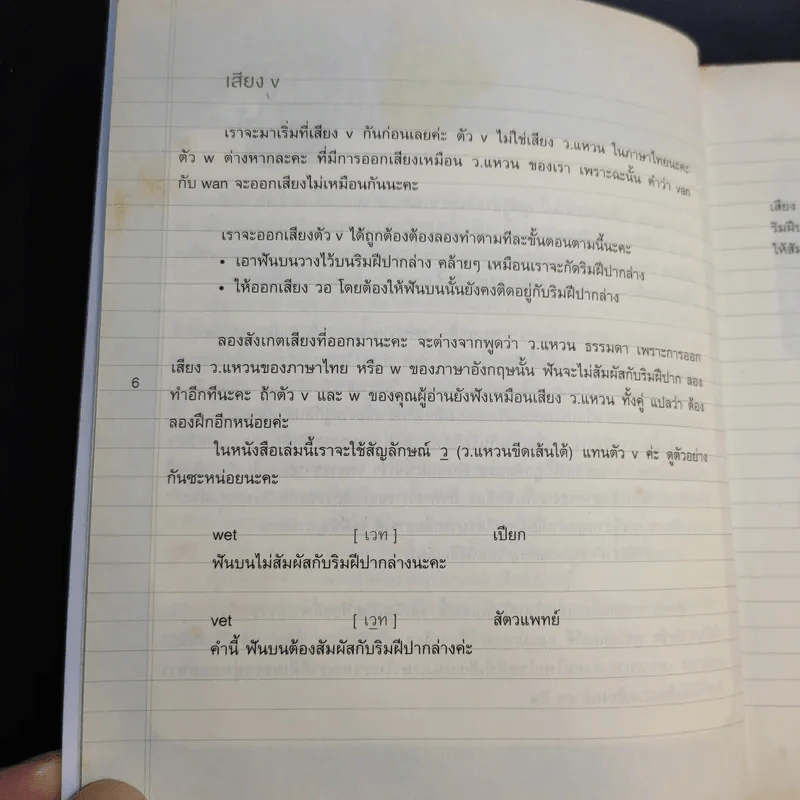 เสียง v
เราจะมาเริ่มที่เสียง v กันก่อนเลยค่ะ ตัว v ไม่ใช่เสียง ว.แหวน ในภาษาไทยนะคะ
ตัว w ต่างหากละคะ ที่มีการออกเสียงเหมือน ว.แหวน ของเรา เพราะฉะนั้น คำว่า van
กับ wan จะออกเสียงไม่เหมือนกันนะคะ
เราจะออกเสียงตัว v ได้ถูกต้องต้องลองทำตามทีละขั้นตอนตามนี้นะคะ
• เอาฟันบนวางไว้บนริมฝีปากล่าง คล้ายๆ เหมือนเราจะกัดริมฝีปากล่าง
• ให้ออกเสียง วอ โดยต้องให้ฟันบนนั้นยังคงติดอยู่กับริมฝีปากล่าง
ลองสังเกตเสียงที่ออกมานะคะ จะต่างจากพูดว่า ว.แหวน ธรรมดา เพราะการออก
เสียง ว.แหวนของภาษาไทย หรือ w ของภาษาอังกฤษนั้น ฟันจะไม่สัมผัสกับริมฝีปาก ลอง
ทำอีกทีนะคะ ถ้าตัว v และ w ของคุณผู้อ่านยังฟังเหมือนเสียง ว.แหวน ทั้งคู่ แปลว่า ต้อง
ลองฝึกอีกหน่อยค่ะ
ในหนังสือเล่มนี้เราจะใช้สัญลักษณ์ ว (ว.แหวนขีดเส้นใต้) แทนตัว v ค่ะ ดูตัวอย่าง
กันซะหน่อยนะคะ
wet [ เวท ] เปียก
ฟันบนไม่สัมผัสกับริมฝีปากล่างนะคะ
vet [ เวท ] สัตวแพทย์
คำนี้ ฟันบนต้องสัมผัสกับริมฝีปากล่างค่ะ
6
เสียง
ริมฝีป
ให้สัม